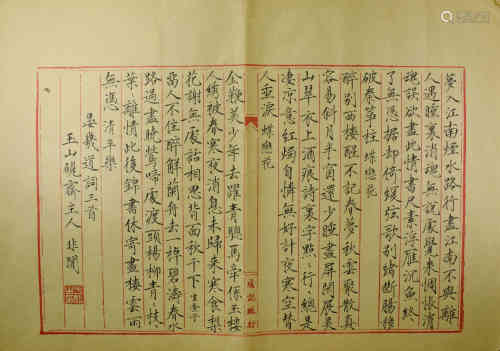 夢入江南煙水路行盡江南不與離
人遇睡裏消魂無說處覺來惆悵消
魂誤欲盡此情書尺素浮雁沉魚終
了無憑據却倚緩弦歌別緒斷腸移
破秦箏柱 蝶戀花
醉別西樓醒不記春夢秋雲聚散真
容易斜月半窗還少睡畫屏閒展吳
山翠衣上酒痕詩裏字點〻行〻總是
淒涼意紅燭自憐無好計夜寒空替
人垂淚 蝶戀花
金鞭美少年去躍青驄馬牽係玉樓
人繡被春寒夜消息未歸來寒食梨
花謝無處說相思背面秋千下 生查子
留人不住醉解蘭舟去一棹碧濤春水
路過盡曉鶯啼處渡頭楊柳青〻枝〻
葉〻離情此後錦書休寄畫樓雲雨
無憑 清平樂
晏幾道詞三首
玉山 齋主人